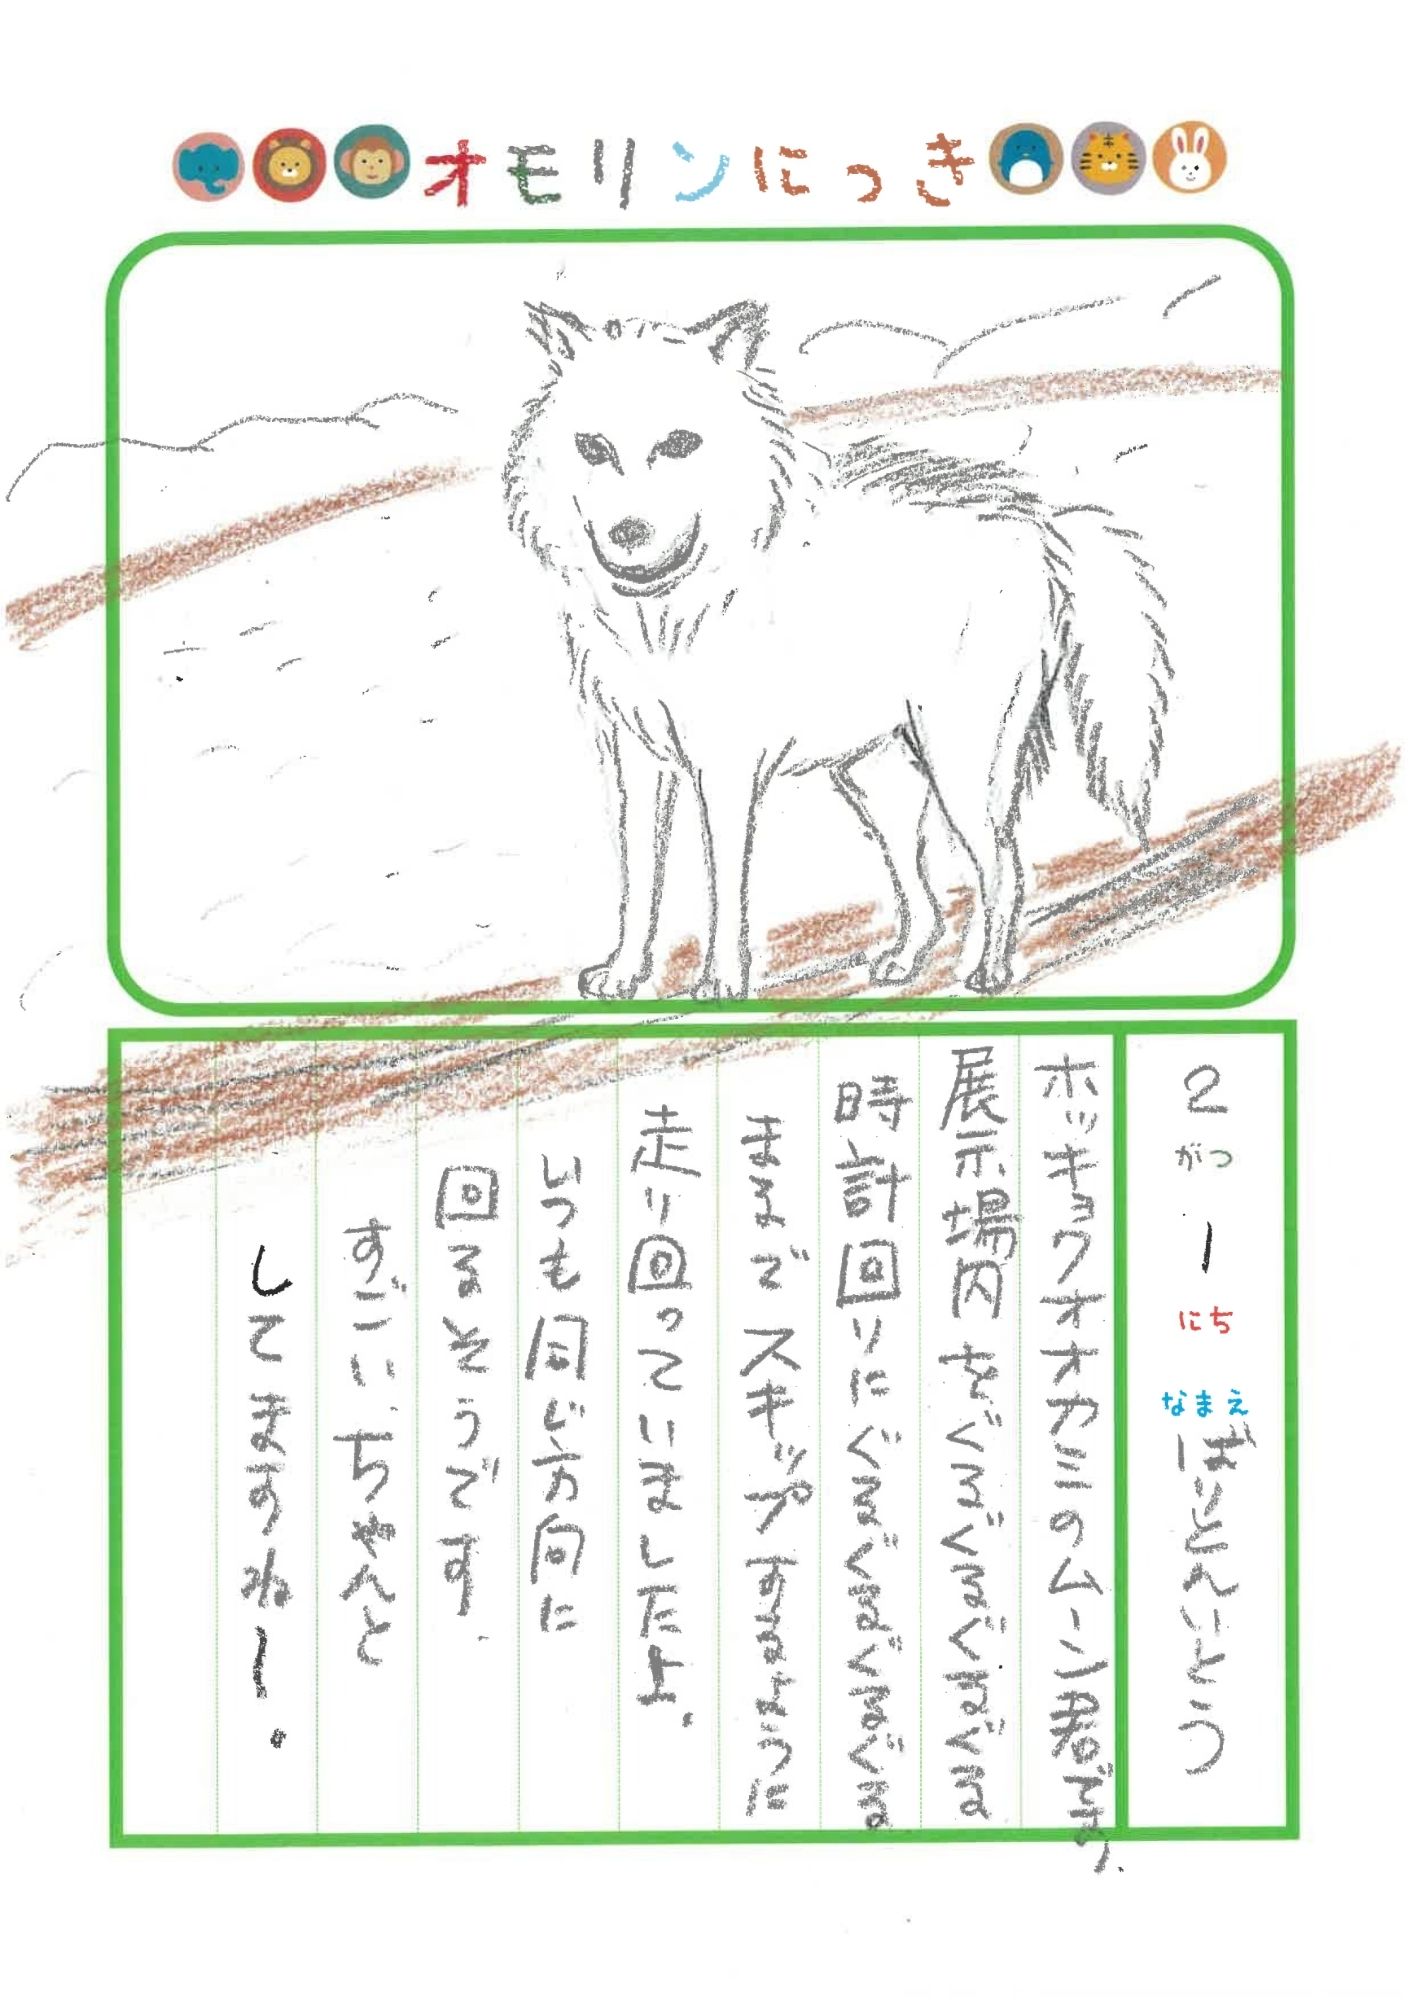 オモリンにっき
2がつ1にち なまえ ばりとんいとう
ホッキョクオオカミのムーン君です。
展示場内をぐるぐるぐるぐる
時計回りにぐるぐるぐるぐる
まるでスキップするように
走り回っていましたよ。
いつも同じ方向に
回るそうです.
すごい、ちゃんと
してますねー。